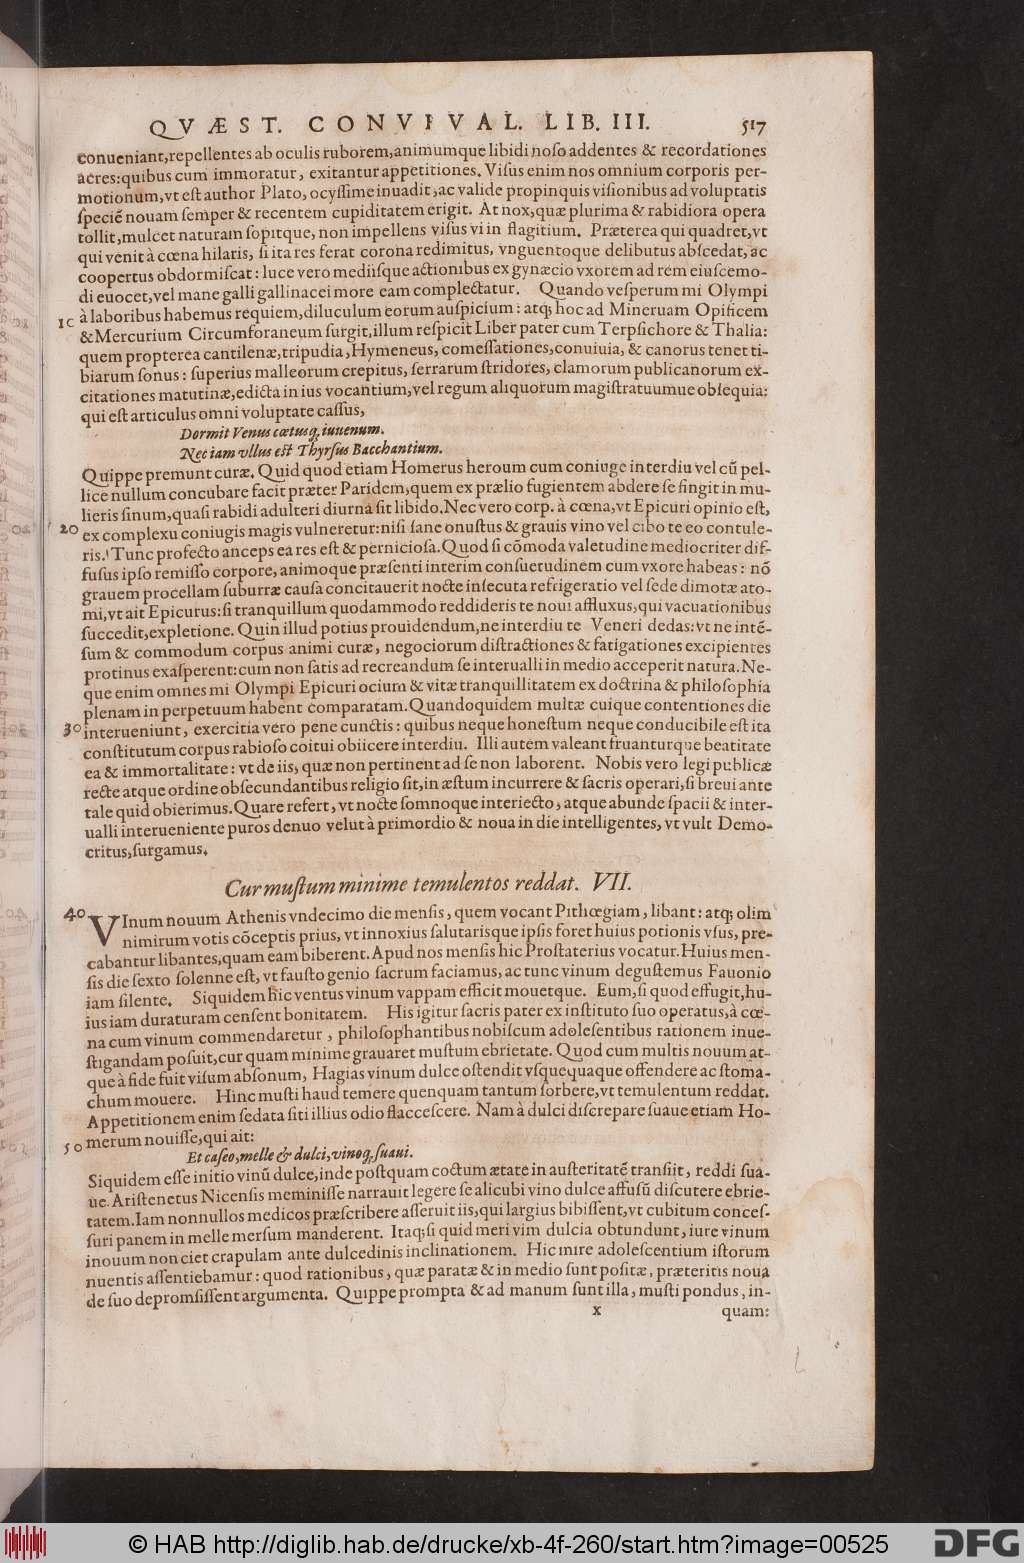 QVÆST. CONVIVAL. LIB. III. 517
conueniant,repellentes ab oculis ruborem,animumque libidinoſo addentes & recordationes
acres:quibus cum immoratur, exitantur appetitiones. Viſus enim nos omnium corporis per-
motionum,vt eſt author Plato, ocyſſime inuadit,ac valide propinquis viſionibus ad voluptatis
ſpeciē nouam ſemper & recentem cupiditatem erigit. At nox,quæ plurima & rabidiora opera
tollit,mulcet naturam ſopitque, non impellens viſus vi in flagitium. Præterea qui quadret,vt
qui venit à cœna hilaris, ſi ita res ferat corona redimitus, vnguentoque delibutus abſcedat, ac
coopertus obdormiſcat: luce vero mediiſque actionibus ex gynæcio vxorem ad rem eiuſcemo-
di euocet,vel mane galli gallinacei more eam complectatur. Quando veſperum mi Olympi
à laboribus habemus requiem,diluculum eorum auſpicium: atq; hoc ad Mineruam Opificem
10 & Mercurium Circumforaneum ſurgit,illum reſpicit Liber pater cum Terpſichore & Thalia:
quem propterea cantilenæ,tripudia,Hymeneus, comeſſationes,conuiuia, & canorus tenet ti-
biarum ſonus: ſuperius malleorum crepitus, ſerrarum ſtridores, clamorum publicanorum ex-
citationes matutinæ,edicta in ius vocantium,vel regum aliquorum magiſtratuumue obſequia:
qui eſt articulus omni voluptate caſſus,
Dormit Venus cœtusq; iuuenum.
Nec iam vllus eſt Thyrſus Bacchantium.
Quippe premunt curæ. Quid quod etiam Homerus heroum cum coniuge interdiu vel cū pel-
lice nullum concubare facit præter Paridem,quem ex prælio fugientem abdere ſe fingit in mu-
lieris ſinum,quaſi rabidi adulteri diurna ſit libido. Nec vero corp. à cœna,vt Epicuri opinio eſt,
20 ex complexu coniugis magis vulneretur:niſi ſane onuſtus & grauis vino vel cibo te eo contule-
ris. Tunc profecto anceps ea res eſt & pernicioſa. Quod ſi cōmoda valetudine mediocriter dif-
fuſus ipſo remiſſo corpore, animoque præſenti interim conſuetudinem cum vxore habeas: nō
grauem procellam ſuburræ cauſa concitauerit nocte inſecuta refrigeratio vel ſede dimotæ ato-
mi,vt ait Epicurus:ſi tranquillum quodammodo reddideris te noui affluxus,qui vacuationibus
ſuccedit,expletione. Quin illud potius prouidendum,ne interdiu te Veneri dedas:vt ne intē-
ſum & commodum corpus animi curæ, negociorum diſtractiones & fatigationes excipientes
protinus exaſperent:cum non ſatis ad recreandum ſe interualli in medio acceperit natura. Ne-
que enim omnes mi Olympi Epicuri ocium & vitæ tranquillitatem ex doctrina & philoſophia
plenam in perpetuum habent comparatam. Quandoquidem multæ cuique contentiones die
30 interueniunt, exercitia vero pene cunctis: quibus neque honeſtum neque conducibile eſt ita
conſtitutum corpus rabioſo coitui obiicere interdiu. Illi autem valeant fruanturque beatitate
ea & immortalitate: vt de iis, quæ non pertinent ad ſe non laborent. Nobis vero legi publicæ
recte atque ordine obſecundantibus religio ſit,in æſtum incurrere & ſacris operari,ſi breui ante
tale quid obierimus. Quare refert, vt nocte ſomnoque interiecto, atque abunde ſpacii & inter-
ualli interueniente puros denuo velut à primordio & noua in die intelligentes, vt vult Demo-
critus,ſurgamus.
Cur muſtum minime temulentos reddat. VII.
40 VInum nouum Athenis vndecimo die menſis, quem vocant Pithœgiam, libant: atq; olim
nimirum votis cōceptis prius, vt innoxius ſalutarisque ipſis foret huius potionis vſus, pre-
cabantur libantes,quam eam biberent. Apud nos menſis hic Proſtaterius vocatur. Huius men-
ſis die ſexto ſolenne eſt, vt fauſto genio ſacrum faciamus, ac tunc vinum deguſtemus Fauonio
iam ſilente. Siquidem hic ventus vinum vappam efficit mouetque. Eum,ſi quod effugit,hu-
ius iam duraturam cenſent bonitatem. His igitur ſacris pater ex inſtituto ſuo operatus,à cœ-
na cum vinum commendaretur, philoſophantibus nobiſcum adoleſentibus rationem inue-
ſtigandam poſuit,cur quam minime grauaret muſtum ebrietate. Quod cum multis nouum at-
que à fide fuit viſum abſonum, Hagias vinum dulce oſtendit vſquequaque offendere ac ſtoma-
chum mouere. Hinc muſti haud temere quenquam tantum ſorbere,vt temulentum reddat.
Appetitionem enim ſedata ſiti illius odio flacceſcere. Nam à dulci diſcrepare ſuaue etiam Ho-
50 merum nouiſſe,qui ait:
Et caſeo,melle & dulci,vinoq; ſuaui.
Siquidem eſſe initio vinū dulce,inde poſtquam coctum ætate in auſteritatē tranſiit, reddi ſua-
ue. Ariſtenetus Nicenſis meminiſſe narrauit legere ſe alicubi vino dulce affuſū diſcutere ebrie-
tatem. Iam nonnullos medicos præſcribere aſſeruit iis,qui largius bibiſſent,vt cubitum conceſ-
ſuri panem in melle merſum manderent. Itaq;ſi quid meri vim dulcia obtundunt, iure vinum
inouum non ciet crapulam ante dulcedinis inclinationem. Hic mire adoleſcentium iſtorum
nuentis aſſentiebamur: quod rationibus, quæ paratæ & in medio ſunt poſitæ, præteritis noua
de ſuo depromſiſſent argumenta. Quippe prompta & ad manum ſunt illa, muſti pondus, in-
x quam:
© HAB http://diglib.hab.de/drucke/xb-4f-260/start.htm?image=00525
DFG